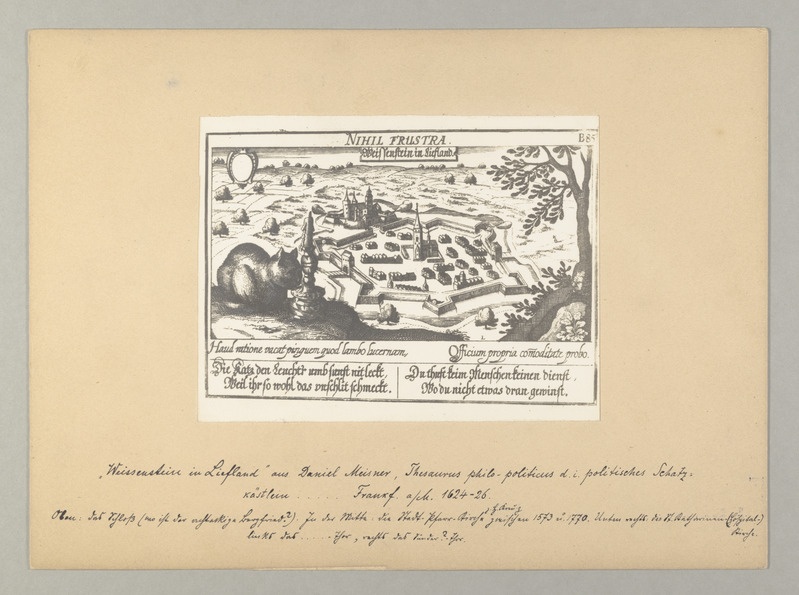 NIHIL FRUSTRA.
E 85
Weissenstein in Liefland.
Haud ratione vacat pinguem quod lambo lucernam,
Officium propria com̄oditate probo.
Die Katz den Leuchtr umb sunst nit leckt,
Weil ihr so wohl das vnschlit schmeckt.
Du thust keim Menschen keinen dienst,
Wo du nicht etwas dran gewinst.
„Weissenstein in Liefland" aus Daniel Meisner, Thesaurus philo-politicus d. i. politisches Schatz=
kästlein ..... Frankf. a/M. 1624-26.
Oben: das Schloß (wo ist der achteckige Bergfried?). In der Mitte: die Stadt-Pfarr-Kirche z. hl. Kreuz zwischen 1573 u. 1770. Unten rechts: die St. Katharinen-(Hospital-)
Kirche.
links das ..... -Thor, rechts das Sünder?-Thor.